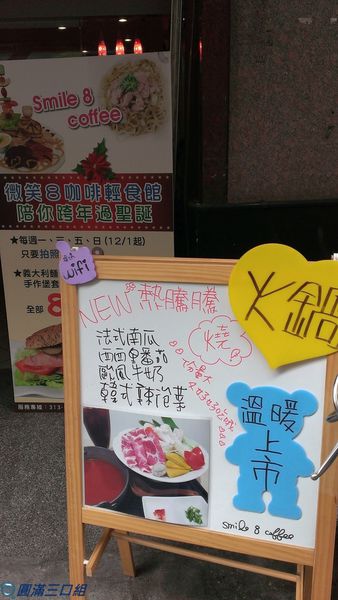 Smile 8
coffee
微笑8咖啡輕食館
陪你跨年過聖誕
★每週一、三、五、日(12/1起)
只要拍照
★義大利麵
手作堡套
全部
服務專線:313-
wifi
NEW 熱騰騰
火鍋
法式南瓜
西西里番茄
歐風牛奶
韓式辣泡菜
燒
份量大
溫暖
上市
smile 8 coffee
圓滿三口組